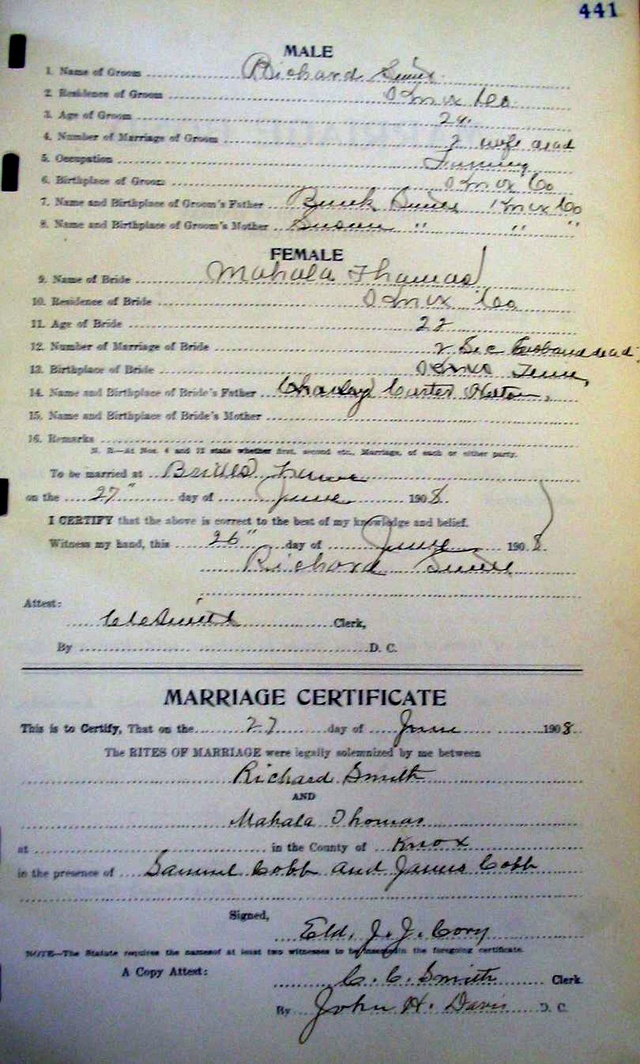 441
MALE
1. Name of Groom Richard Smith
2. Residence of Groom Knox Co
3. Age of Groom
4. Number of Marriage of Groom 2 wife dead
5. Occupation Farming
6. Birthplace of Groom Knox Co
7. Name and Birthplace of Groom's Father Knox Co
8. Name and Birthplace of Groom's Mother Susan " " "
FEMALE
9. Name of Bride Mahala Thomas
10. Residence of Bride Knox Co
11. Age of Bride 22
12. Number of Marriage of Bride 2 Husband dead
13. Birthplace of Bride Tenn,
14. Name and Birthplace of Bride's Father Charley Carter
15. Name and Birthplace of Bride's Mother
16. Remarks
N. B.—At Nos. 4 and 12 state whether first, second etc., Marriage, of each or either party.
To be married at Brides
on the 27" day of June 1908.
I CERTIFY that the above is correct to the best of my knowledge and belief.
Witness my hand, this 26" day of June, 1908
Richard Smith
Attest:
Clerk,
By D. C.
MARRIAGE CERTIFICATE
This is to Certify, That on the 27 day of June 1908.
The RITES OF MARRIAGE were legally solemnized by me between
Richard Smith
AND
Mahala Thomas
at in the County of Knox
in the presence of Samuel Cobb and James Cobb
Signed,
Eld. J. J. Cory
NOTE—The Statute requires the names of at least two witnesses to be in the foregoing certificate.
A Copy Attest: C. C. Smith Clerk.
By John H. Davis D. C.